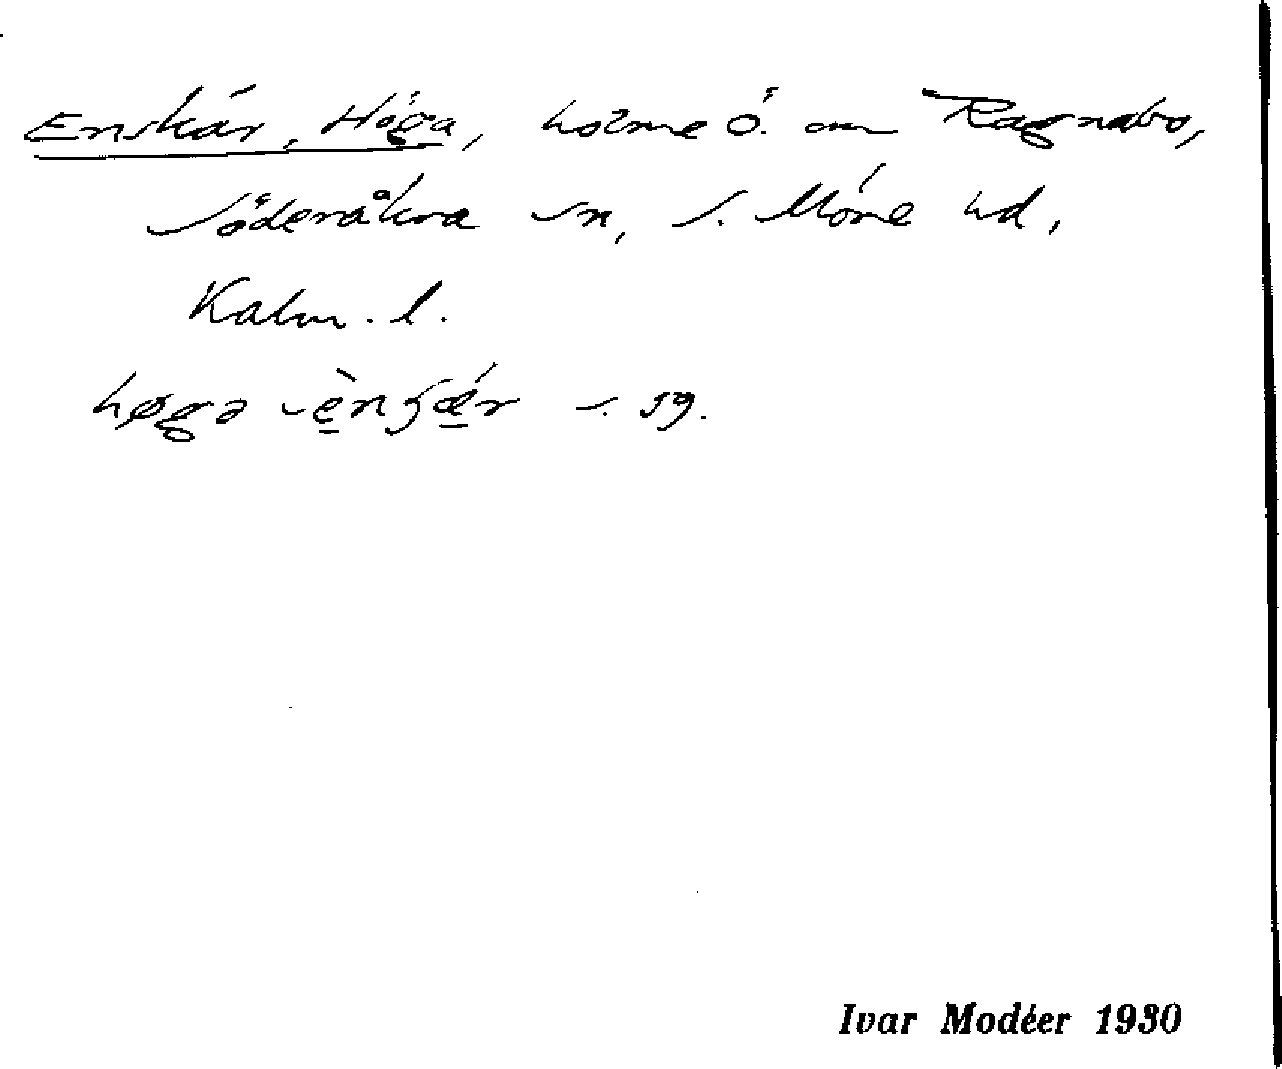 Enskär, Höga, holme Ö. om Ragnabo,
Söderåkra sn, S. Möre hd,
Kalm. l.
høga -ènʃǽr s. sg.
Ivar Modéer 1930